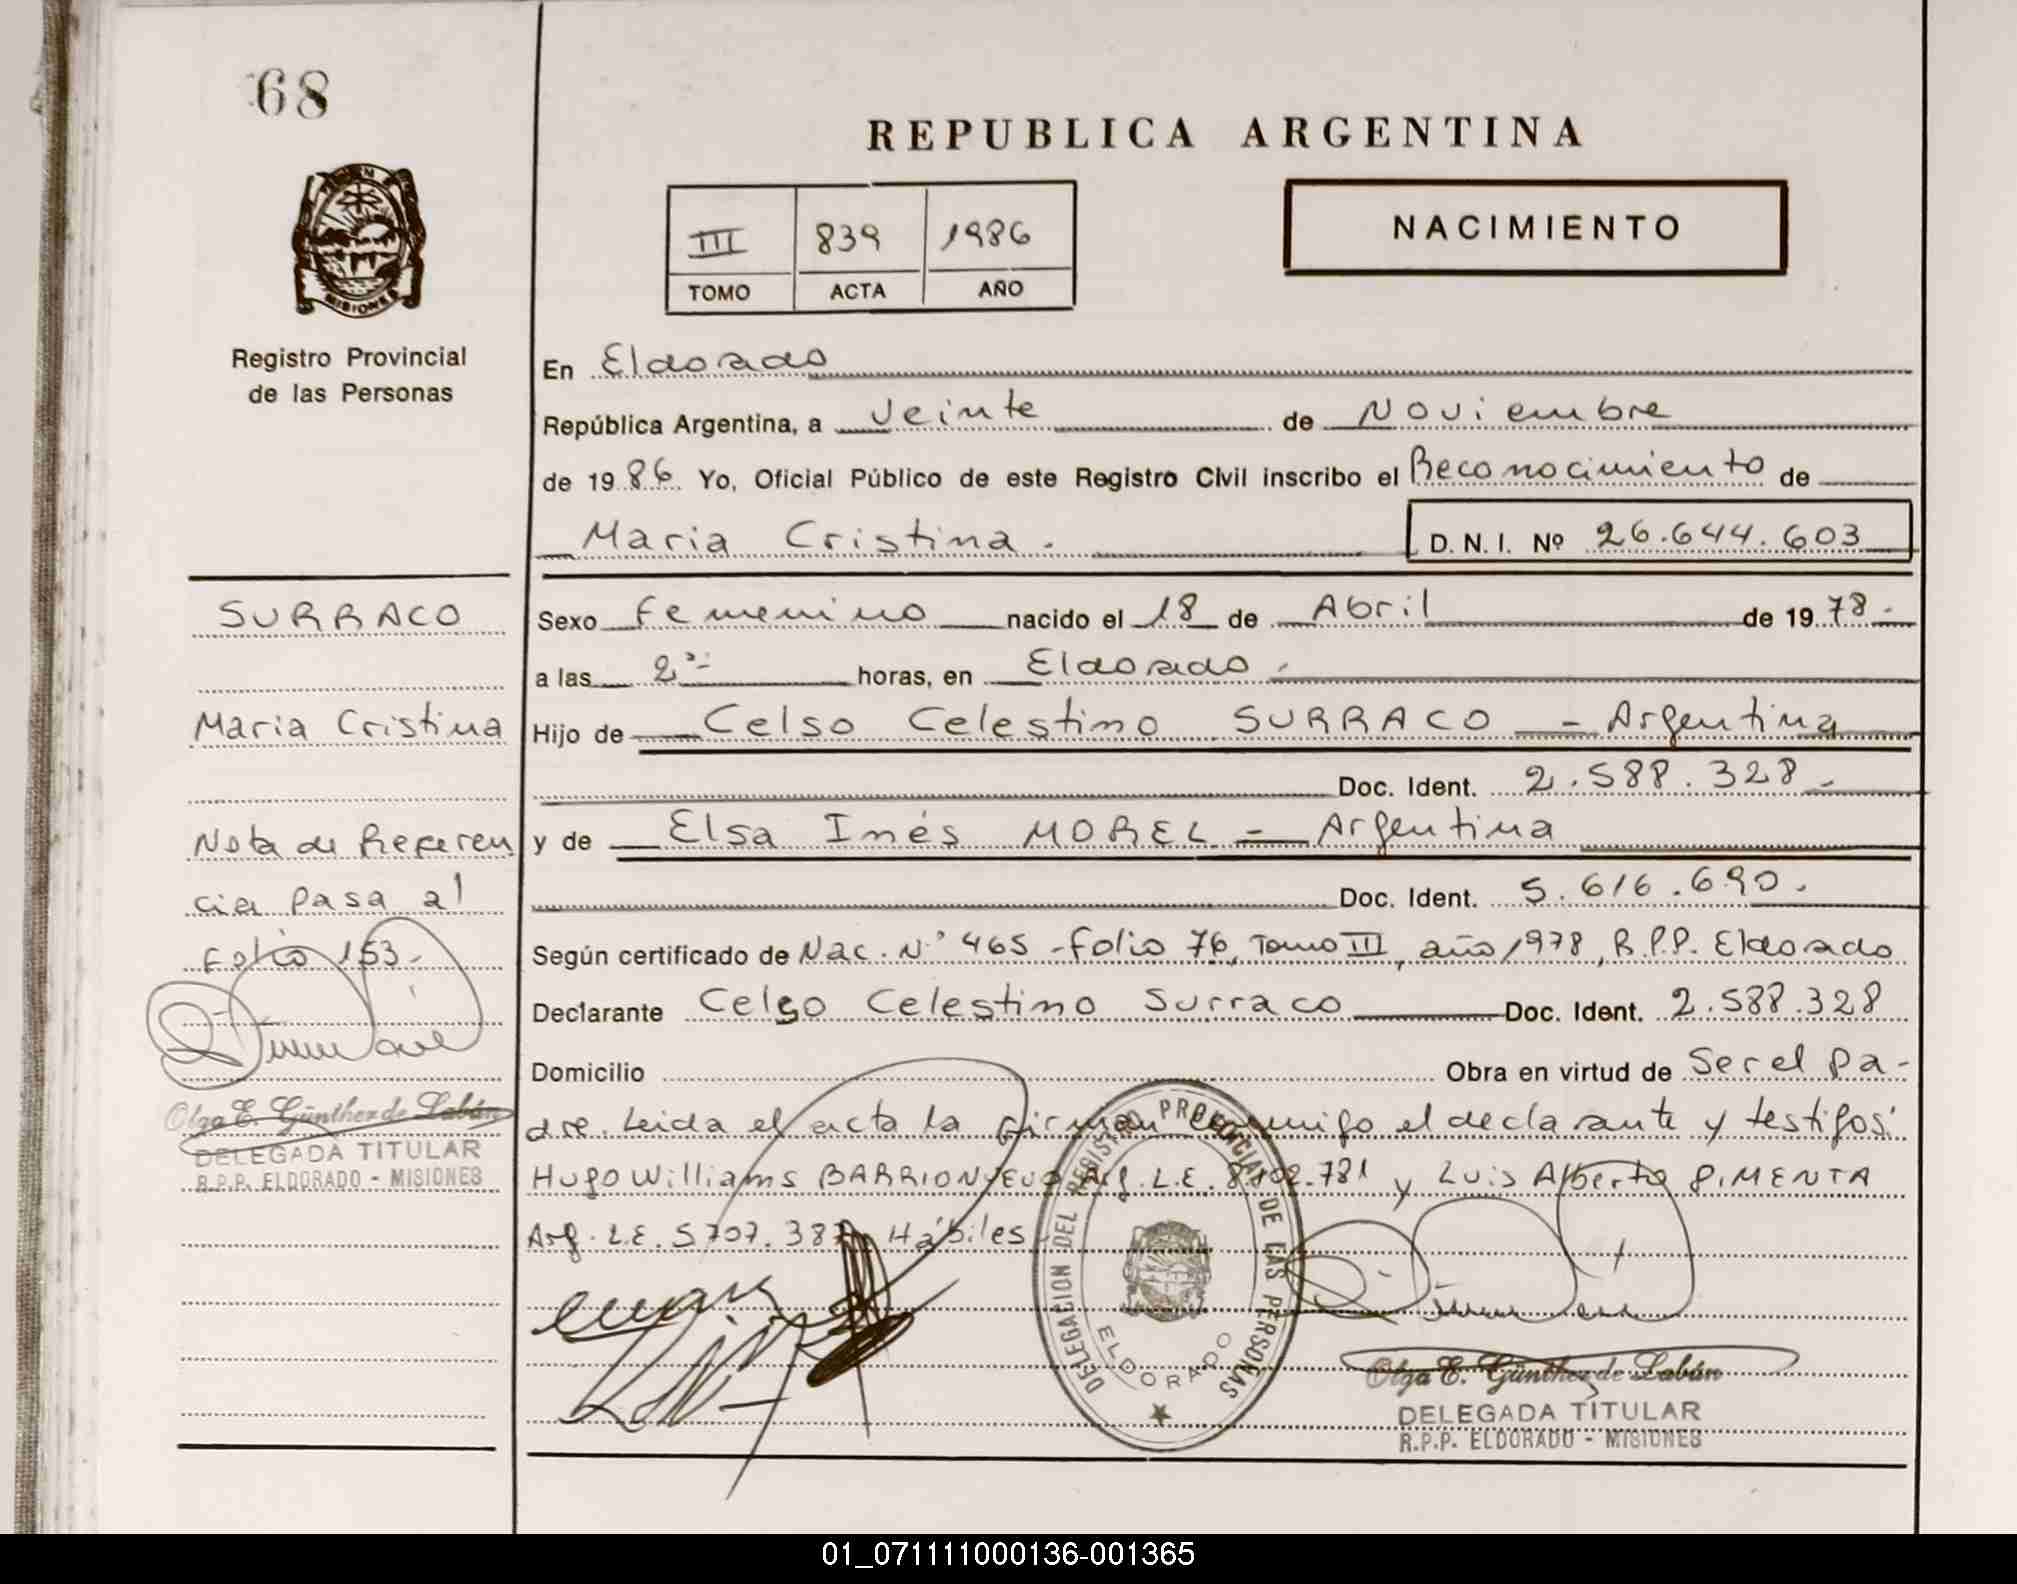 68
REPUBLICA ARGENTINA
NACIMIENTO
III 839 1986
TOMO ACTA AÑO
MISIONES
Registro Provincial
de las Personas
En Eldorado
República Argentina, a Veinte de Noviembre
de 1986. Yo, Oficial Público de este Registro Civil inscribo el Reconocimiento de
Maria Cristina. D. N. I. Nº 26.644.603
SURRACO
Maria Cristina
Nota de Referen
cia pasa al
Folio 153.-
Olga E. Günther de Labán
DELEGADA TITULAR
R.P.P. ELDORADO - MISIONES
Sexo Femenino nacido el 18 de Abril de 1978.-
a las 2 horas, en Eldorado.
Hijo de Celso Celestino SURRACO - Argentina
Doc. Ident. 2.588.328.-
y de Elsa Inés MOREL - Argentina
Doc. Ident. 5.616.690.
Según certificado de Nac. Nº 465 - Folio 76, Tomo III, año 1978, R.P.P. Eldorado
Declarante Celso Celestino Surraco Doc. Ident. 2.588.328
Domicilio Obra en virtud de Ser el pa-
dre. Leida el acta la firman conmigo el declarante y testigos:
Hugo Williams BARRIONUEVO Arg. L.E. 8.102.781 y Luis Alberto PIMENTA
Arg. L.E. 5707.387 Hábiles
DELEGACION DEL REGISTRO PROVINCIAL DE LAS PERSONAS
ELDORADO
Olga E. Günther de Labán
DELEGADA TITULAR
R.P.P. ELDORADO - MISIONES
01_071111000136-001365